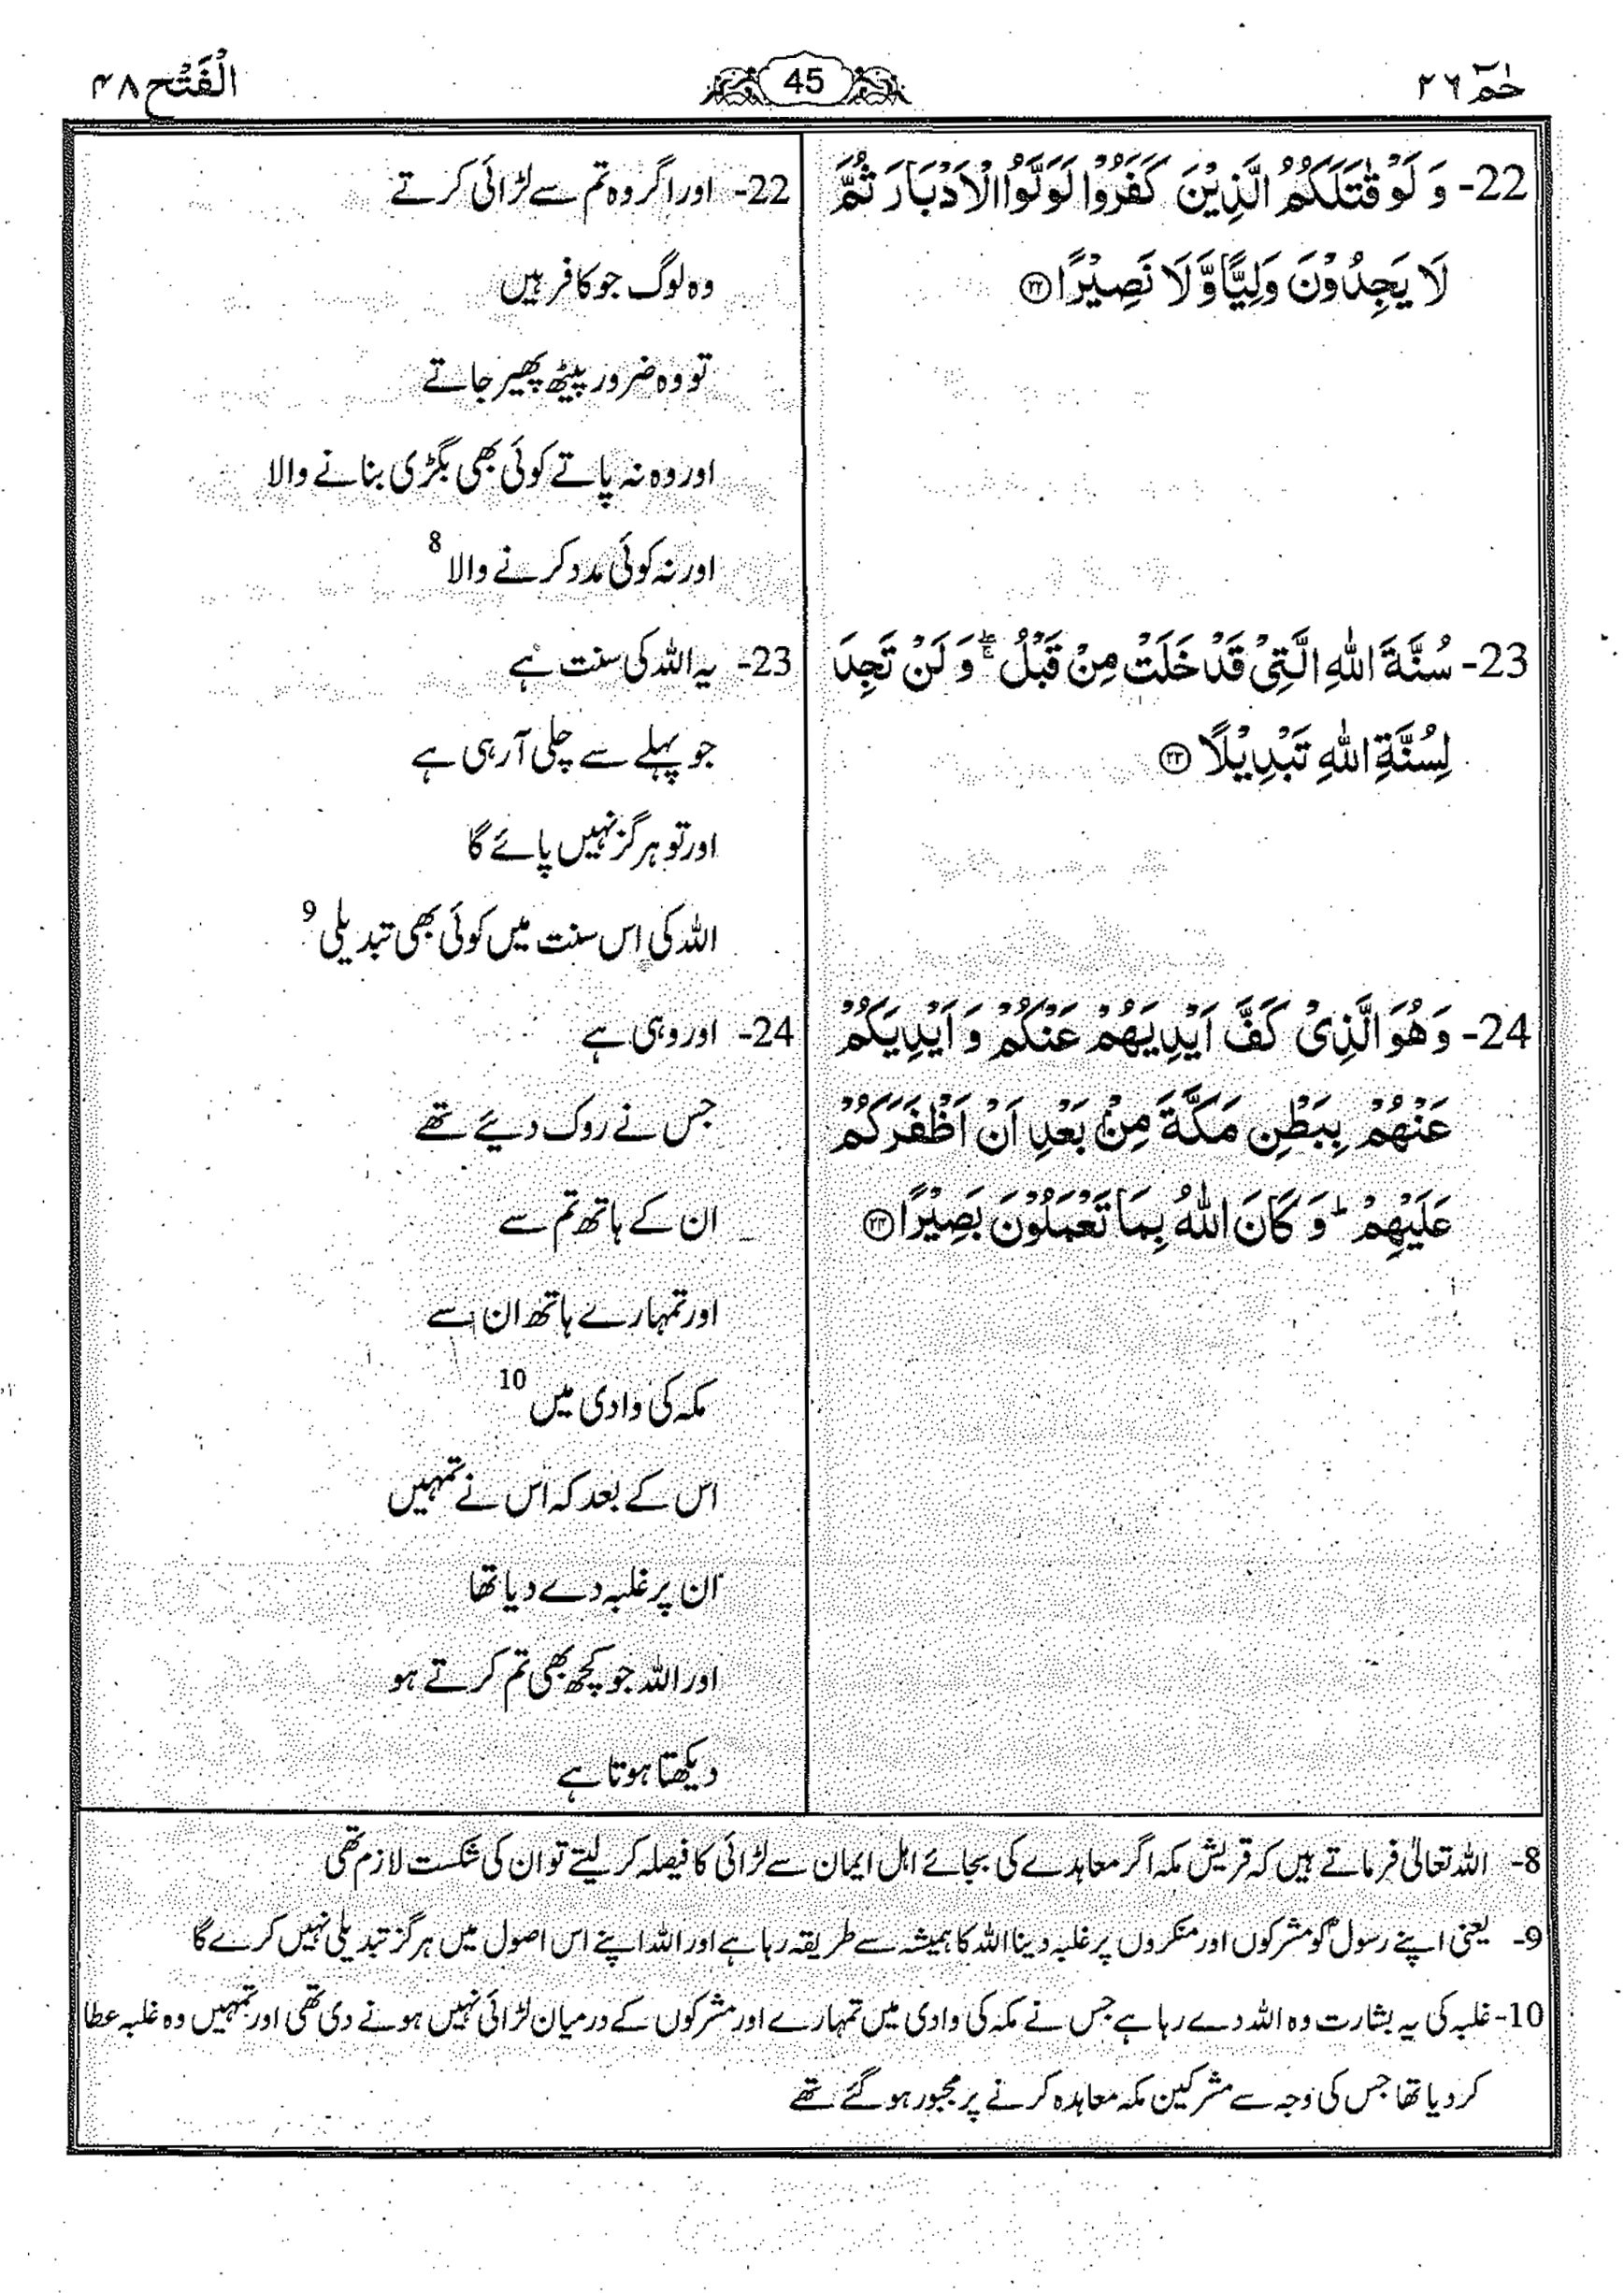 حٰمٓ ٢٦
45
الْفَتْح ۴۸
22- وَ لَوْ قٰتَلَكُمُ الَّذِيْنَ كَفَرُوْا لَوَلَّوُا الْاَدْبَارَ ثُمَّ
لَا يَجِدُوْنَ وَلِيًّا وَّ لَا نَصِيْرًا ۲۲
23- سُنَّةَ اللّٰهِ الَّتِيْ قَدْ خَلَتْ مِنْ قَبْلُ ۖۚ وَ لَنْ تَجِدَ
لِسُنَّةِ اللّٰهِ تَبْدِيْلًا ۲۳
24- وَ هُوَ الَّذِيْ كَفَّ اَيْدِيَهُمْ عَنْكُمْ وَ اَيْدِيَكُمْ
عَنْهُمْ بِبَطْنِ مَكَّةَ مِنْۢ بَعْدِ اَنْ اَظْفَرَكُمْ
عَلَيْهِمْ ؕ وَ كَانَ اللّٰهُ بِمَا تَعْمَلُوْنَ بَصِيْرًا ۲۴
22- اور اگر وہ تم سے لڑائی کرتے
وہ لوگ جو کافر ہیں
تو وہ ضرور پیٹھ پھیر جاتے
اور وہ نہ پاتے کوئی بھی بگڑی بنانے والا
اور نہ کوئی مدد کرنے والا 8
23- یہ اللہ کی سنت ہے
جو پہلے سے چلی آ رہی ہے
اور تو ہرگز نہیں پائے گا
اللہ کی اس سنت میں کوئی بھی تبدیلی 9
24- اور وہی ہے
جس نے روک دیئے تھے
ان کے ہاتھ تم سے
اور تمہارے ہاتھ ان سے
مکہ کی وادی میں 10
اس کے بعد کہ اس نے تمہیں
ان پر غلبہ دے دیا تھا
اور اللہ جو کچھ بھی تم کرتے ہو
دیکھتا ہوتا ہے
8- اللہ تعالٰی فرماتے ہیں کہ قریش مکہ اگر معاہدے کی بجائے اہل ایمان سے لڑائی کا فیصلہ کر لیتے تو ان کی شکست لازم تھی
9- یعنی اپنے رسولؐ کو مشرکوں اور منکروں پر غلبہ دینا اللہ کا ہمیشہ سے طریقہ رہا ہے اور اللہ اپنے اس اصول میں ہرگز تبدیلی نہیں کرے گا
10- غلبہ کی یہ بشارت وہ اللہ دے رہا ہے جس نے مکہ کی وادی میں تمہارے اور مشرکوں کے درمیان لڑائی نہیں ہونے دی تھی اور تمہیں وہ غلبہ عطا
کر دیا تھا جس کی وجہ سے مشرکین مکہ معاہدہ کرنے پر مجبور ہو گئے تھے